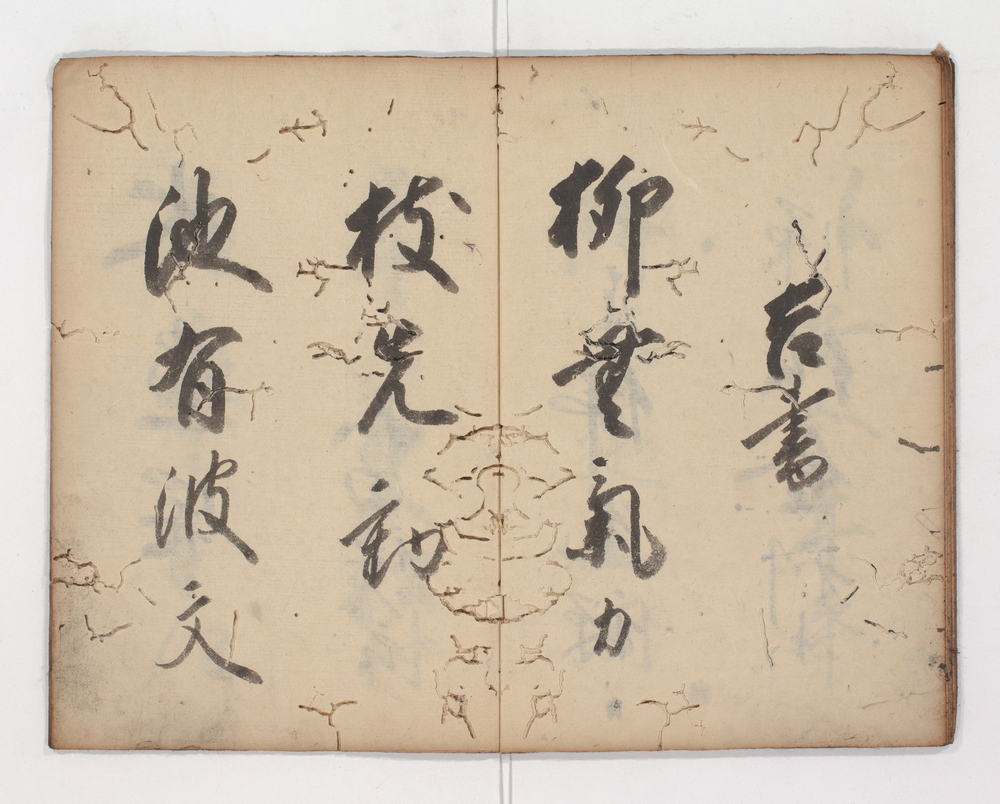 吉書
柳無氣力
枝先動
池有波文